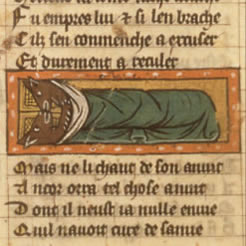 Fu empres lui & si len brache
Cil sen conmenche a escuser
Et durement a reculer
Mais ne li chaut de son anuit
A ncor orra tel chose anuit
Dont il neust ia nulle enuie
Quil nauoit cure de sa uie